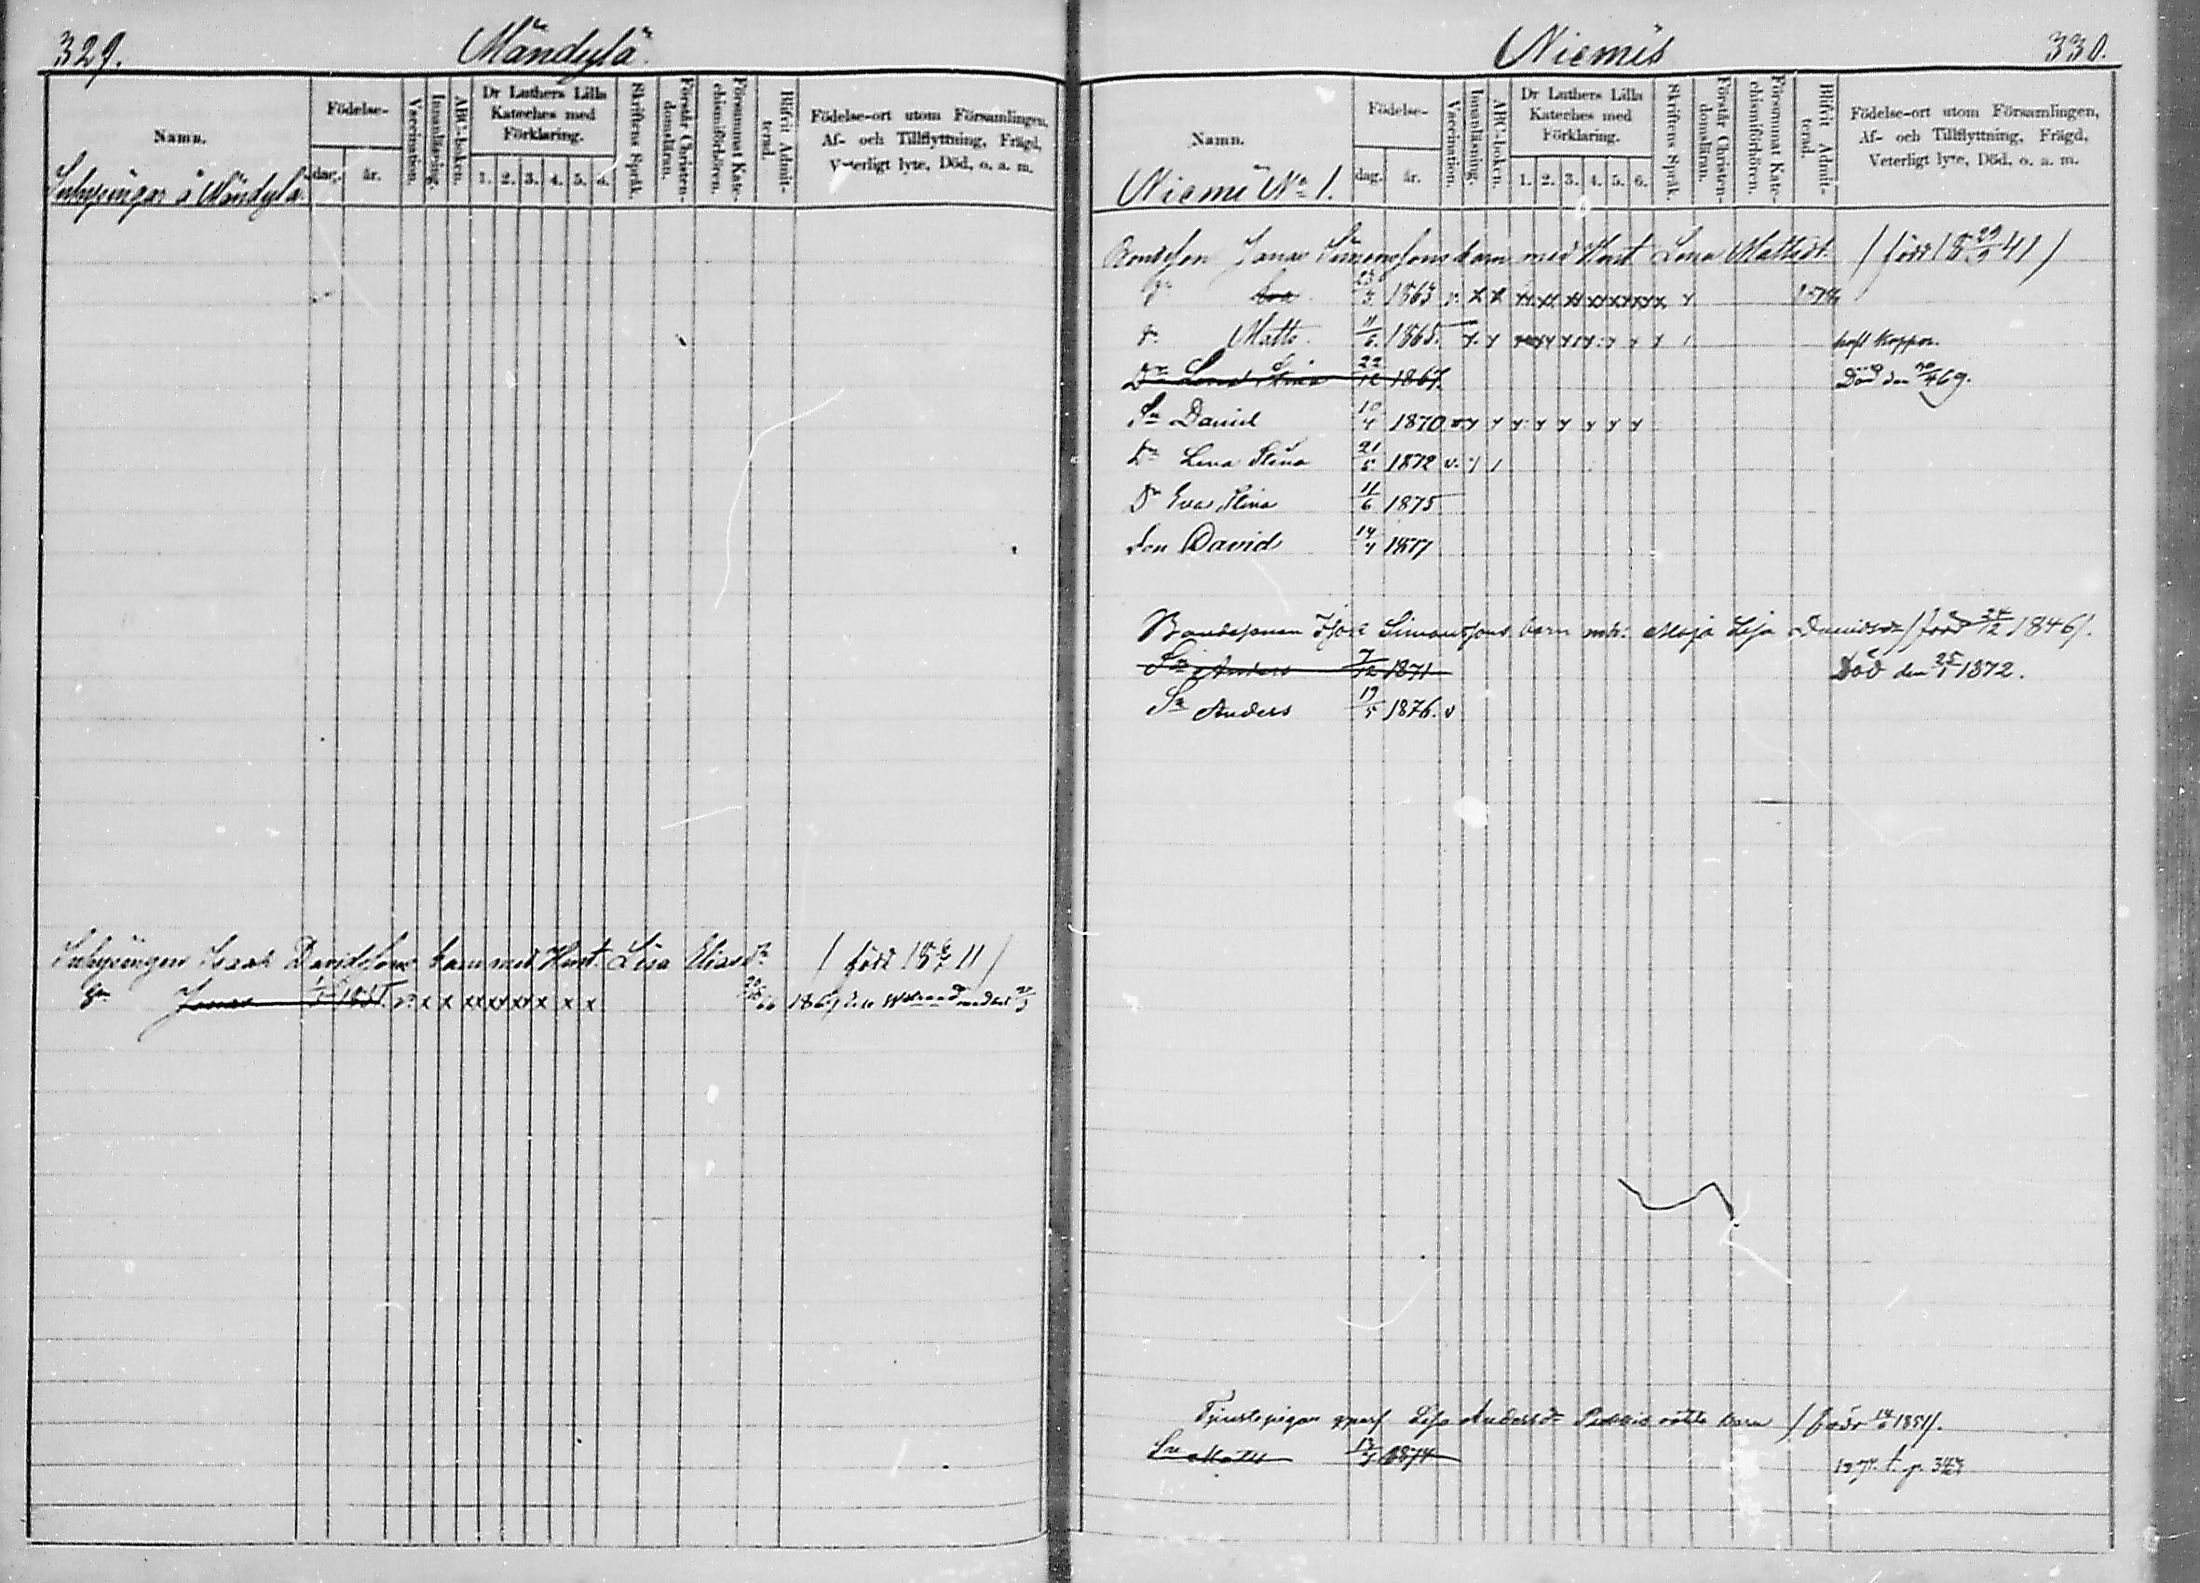 329.
Mändylä.
Namn.
Födelse-
dag.
år.
Vaccination.
Innanläsning.
ABC-boken.
Dr Luthers Lilla
Kateches med
Förklaring.
1. 2. 3. 4. 5. 6.
Skriftens Språk.
Förstår Christen-
domsläran.
Försummat Kate-
chismiförhören.
Blifvit Admit-
terad.
Födelse-ort utom Församlingen,
Af- och Tillflyttning, Frägd,
Veterligt lyte, Död, o. a. m.
Inhysingar å Mändylä.
Inhysingen Isaak Davidssons barn med Hust. Lisa Eliasdr (född 18 11)
Jonas 1/5 x x xx xx xx x x x
Niemis
330.
Namn.
Födelse-
dag.
år.
Vaccination.
Innanläsning.
ABC-boken.
Dr Luthers Lilla
Kateches med
Förklaring.
1. 2. 3. 4. 5. 6.
Skriftens Språk.
Förstår Christen-
domsläran.
Försummat Kate-
chismiförhören.
Blifvit Admit-
terad.
Födelse-ort utom Församlingen,
Af- och Tillflyttning, Frägd,
Veterligt lyte, Död, o. a. m.
Niemi No 1.
Bondeson Jonas Simonssons barn med Hust Lena Mattsdr. (född 18 29/9 41)
23/3 1863 v. x x xx xx xx xx xx xx
Matts. 11/6. 1865. haft koppor.
Dr Lena Stina 22/12 1867. Död den 20/4 69.
Sn David 10/4 1870 v
Dr Lena Stina 21/5 1872 v.
Dr Eva Stina 11/6 1875
Son David 14/4 1877
Bondesonen Isak Simonssons barn m. h. Maja Lisa Davidsdr (född 24/12 1846).
Sn Anders 7/12 1871 Död den 25/1 1872.
Sn Anders 19/5 1876. v
Tjenstepigan Lisa Andersdr oäkta barn (född 14/6 1851).
Sn Matts 13/4 1874 t. p. 343